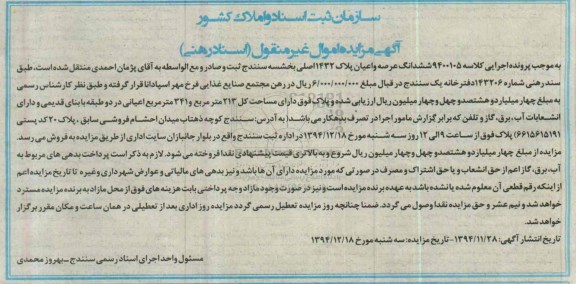 سازمان ثبت اسناد و املاک کشور
آگهی مزایده اموال غیر منقول (اسناد رهنی)
به موجب پرونده اجرایی کلاسه ۹۴۰۰۱۰۵ ششدانگ عرصه واعیان پلاک ۱۴۳۲ اصلی بخشسه سنندج ثبت و صادر و مع الواسطه به آقای پژمان احمدی منتقل شده است، طبق
سند رهنی شماره ۱۴۳۲۰۶ دفترخانه یک سنندج در قبال مبلغ ۶/۰۰۰/۰۰۰/۰۰۰ ریال در رهن مجتمع صنایع غذایی فرخ مهر اسپادانا قرار گرفته و طبق نظر کارشناس رسمی
به مبلغ چهار میلیارد و هشتصدو چهل وچهار میلیون ریال ارزیابی شده و پلاک فوق دارای مساحت کل ۲۱۳ متر مربع و ۳۴۱ متر مربع اعیانی در دو طبقه با بنای قدیمی و دارای
انشعابات آب، برق، گاز و تلفن که برابر گزارش مامور اجرا در تصرف بدهکار می باشد( به آدرس: سنندج کوچه ذهتاب میدان احشام فروشی سابق ، پلاک ۲۰ کد پستی
۶۶۱۵۶۱۵۱۹۱) پلاک فوق از ساعت ۹ الی ۱۲ روز سه شنبه مورخ ۱۳۹۴/۱۲/۱۸ در اداره ثبت سنندج واقع در بلوار جانبازان سایت اداری از طریق مزایده به فروش می رسد.
مزایده از مبلغ چهار میلیارد و هشتصدو چهل وچهار میلیون ریال شروع و به بالاترین قیمت پیشنهادی نقدا فروخته می شود. لازم به ذکر است پرداخت بدهی های مربوط به
آب، برق، گاز اعم از حق انشعاب و یا حق اشتراک و مصرف در صورتی که مورد مزایده دارای آن ها باشد و نیز بدهی های مالیاتی و عوارض شهرداری و غیره تا تاریخ مزایده اعم
از اینکه رقم قطعی آن معلوم شده یا نشده باشد به عهده برنده مزایده است و نیز در صورت وجود مازاد وجه پرداختی بابت هزینه های فوق از محل مازاد به برنده مزایده مسترد
خواهد شد و نیم عشر و حق مزایده نقدا وصول می گردد. ضمنا چنانچه روز مزایده تعطیل رسمی گردد مزایده روز اداری بعد از تعطیلی در همان ساعت و مکان مقرر برگزار
خواهد شد.
تاریخ انتشار آگهی: ۱۳۹۴/۱۱/۲۸- تاریخ مزایده: سه شنبه مورخ ۱۳۹۴/۱۲/۱۸
مسئول واحد اجرای اسناد رسمی سنندج - بهروز محمدی